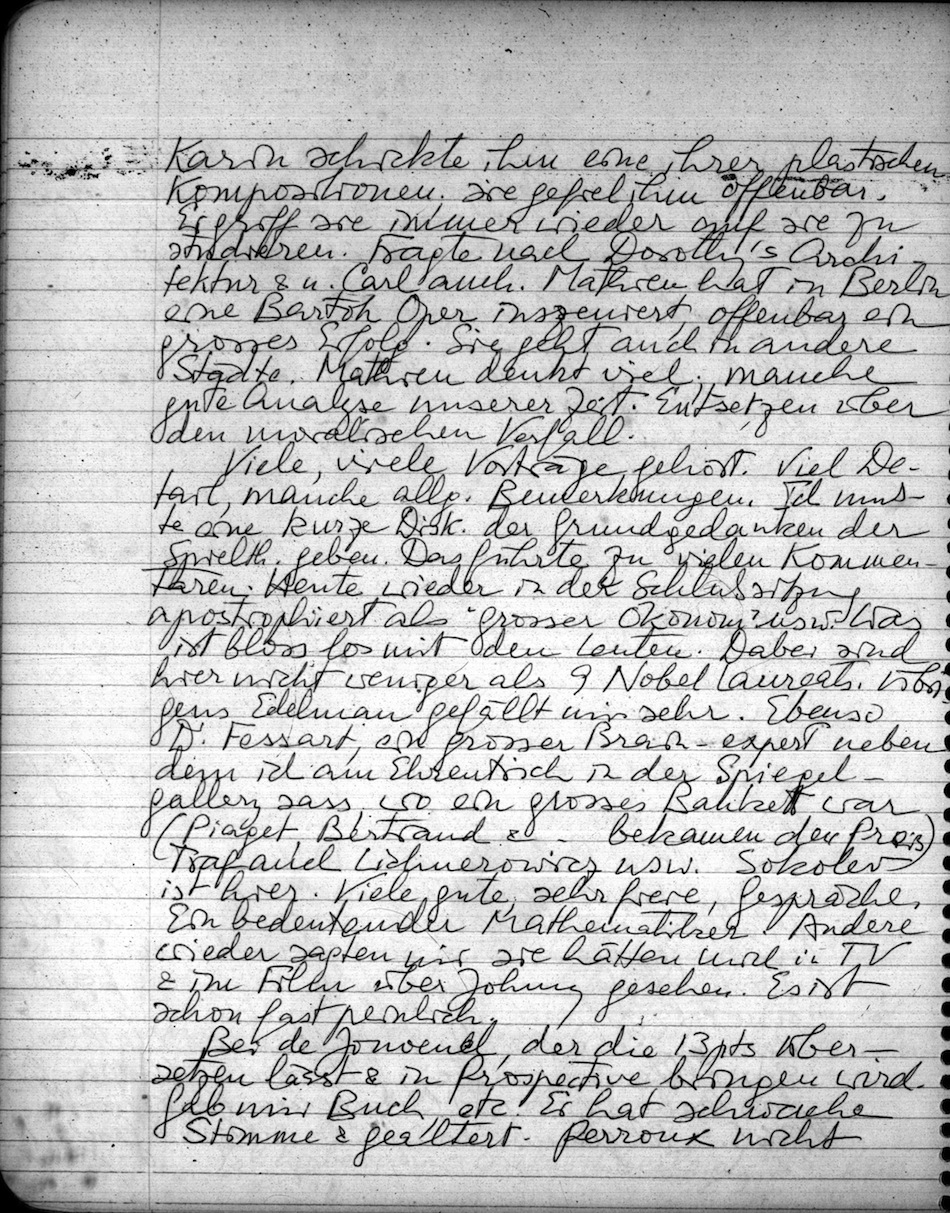 Karin schickte ihm eine ihrer plastischen
Kompositionen. Sie gefiel ihm offenbar.
Er griff sie immer wieder auf sie zu
studieren. Fragte nach Dorothy's Archi-
tektur & u. Carl auch. Mathieu hat in Berlin
eine Bartók Oper inszeniert, offenbar ein
grosses Erfolg. Sie geht auch in andere
Städte. Mathieu denkt viel, manche
gute Analyse unserer Zeit. Entsetzen über
den moralischen Verfall.
Viele, viele Vorträge gehört. Viel De-
tail, manche allg. Bemerkungen. Ich muss-
te eine kurze Disk. der Grundgedanken der
Spielth. geben. Das führte zu vielen Kommen-
taren. Heute wieder in der Schlußsitzung
apostrophiert als "grosser Ökonom" usw. Was
ist bloss los mit den Leuten. Dabei sind
hier nicht weniger als 9 Nobel Laureats. Übri-
gens Edelman gefällt mir sehr. Ebenso
D. Fessart, ein grosser Brain-expert neben
dem ich am Ehrentisch in der Spiegel-
gallery sass, wo ein grosses Bankett war
(Piaget Bertrand & - bekamen den Preis)
Traf auch Lichnerowicz usw. Sokolov
ist hier. Viele gute, sehr freie, Gespräche.
Ein bedeutender Mathematiker. Andere
wieder sagten mir sie hätten mich in TV
& im Film über Johnny gesehen. Es ist
schon fast peinlich.
Bei de Jouvenel, der die 13 pts über-
setzen lässt & in Prospective bringen wird.
Gab mir Buch, etc. Er hat schwache
Stimme & gealtert. Perroux nicht